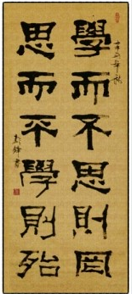 學而不思則罔
思而不學則殆